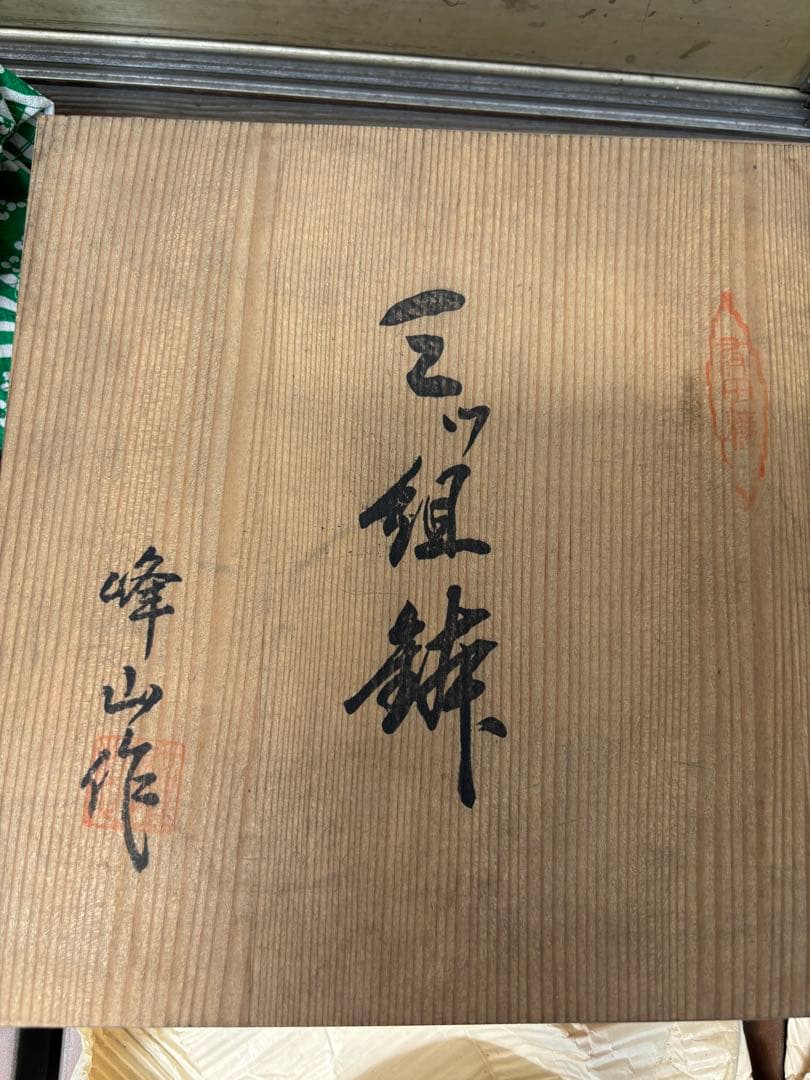 三ッ組鉢
峰山作